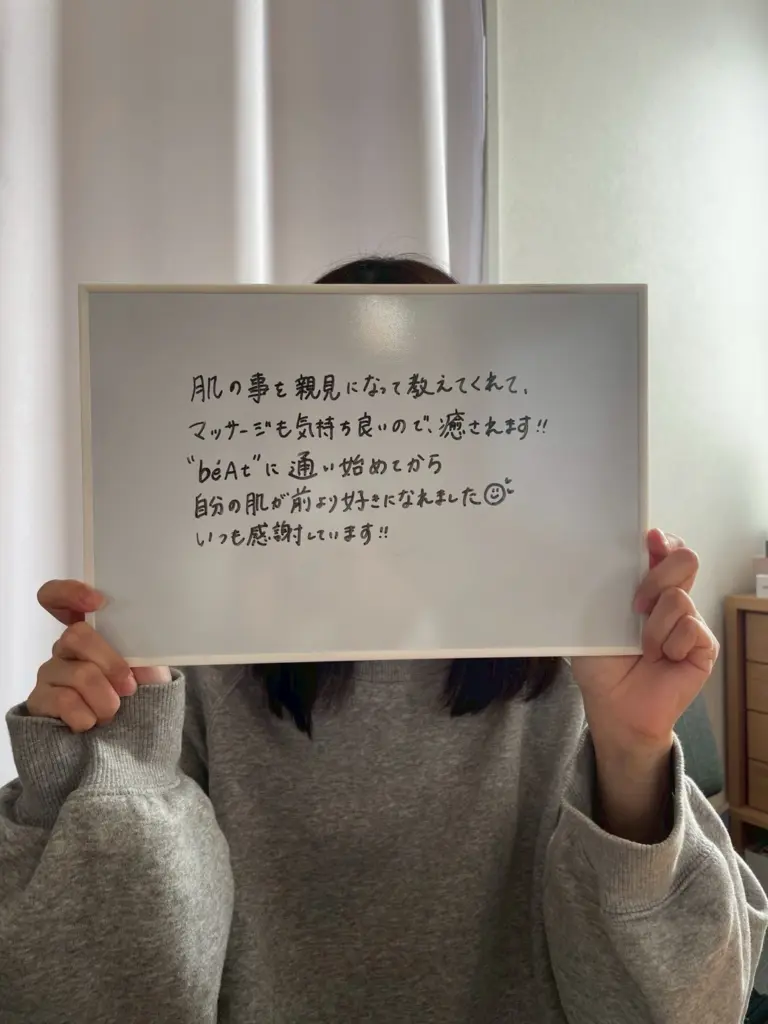 肌の事を親見になって教えてくれて、
マッサージも気持ち良いので、癒されます!!
"béAt"に通い始めてから
自分の肌が前より好きになれました☺
いつも感謝しています!!